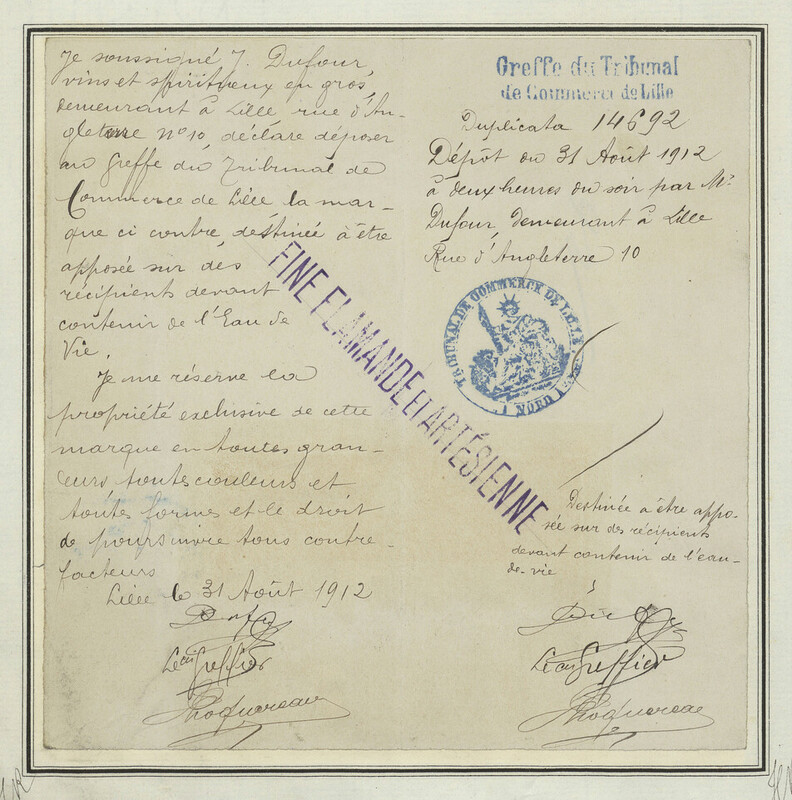 Je soussigné J. Dufour,
vins et spiritueux en gros,
demeurant à Lille rue d'An-
gleterre n° 10, déclare déposer
au Greffe du Tribunal de
Commerce de Lille la mar-
que ci contre, destinée à être
apposée sur des
récipients devant
contenir de l'Eau de
Vie.
Je me réserve la
propriété exclusive de cette
marque en toutes gran-
deurs toutes couleurs et
toutes formes et le droit
de poursuivre tous contre-
facteurs
Lille le 31 Août 1912
Le Cis Greffier
FINE FLAMANDE ET ARTÉSIENNE
Greffe du Tribunal
de Commerce de Lille
Duplicata 14692
Dépôt du 31 Août 1912
à deux heures du soir par Mr
Dufour, demeurant à Lille
Rue d'Angleterre 10
TRIBUNAL DE COMMERCE DE LILLE
NORD
Destinée à être appo-
sée sur des récipients
devant contenir de l'eau-
de-vie
Le Cis Greffier